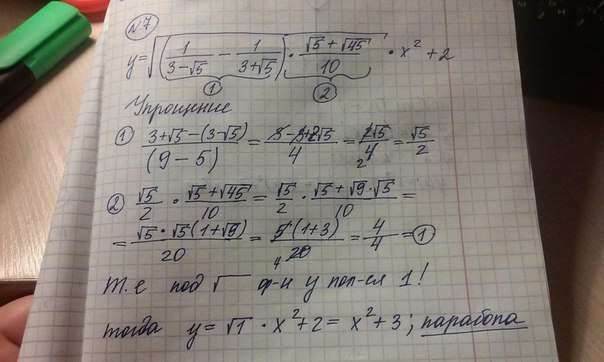 №7
y = √((1/(3-√5) - 1/(3+√5)) · (√5 + √45)/10) · x² + 2
① ②
Упрощение
① (3+√5-(3-√5))/(9-5) = (3-3+2√5)/4 = 2√5/4 = √5/2
2
② √5/2 · (√5+√45)/10 = √5/2 · (√5+√9·√5)/10 =
= (√5·√5(1+√9))/20 = 5(1+3)/20 = 4/4 = ①
4
т.е под √ ф-и y пол-ся 1!
тогда y = √1 · x²+2 = x²+3; парабола